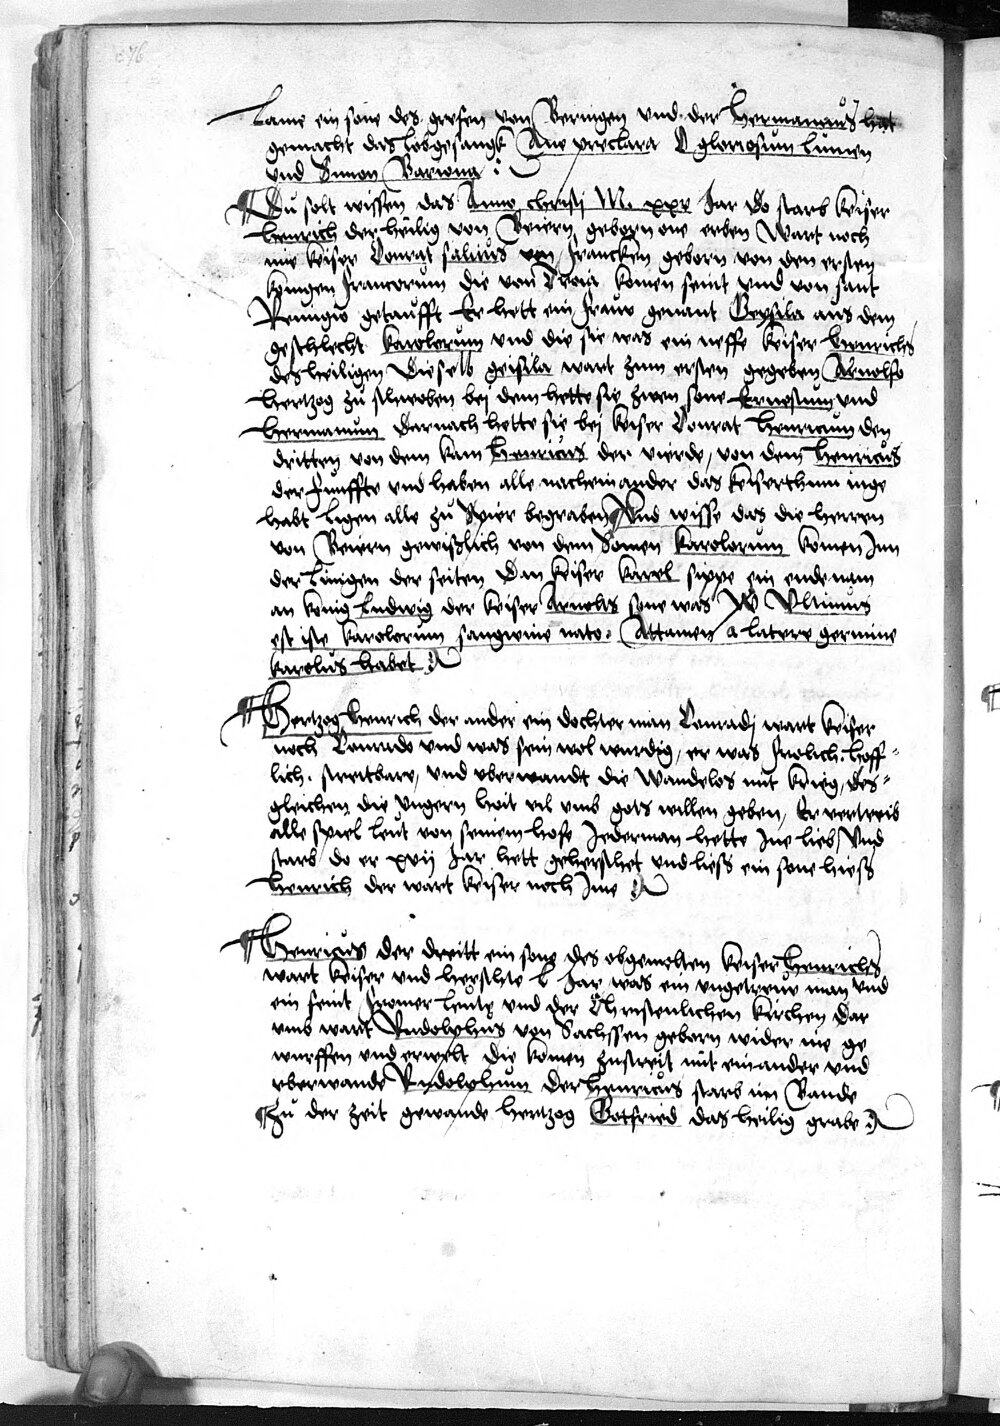 76
Lame ein sone des grefen von Veringen vnd der Hermannus hat
gemacht das lobgesangk Aue preclara O gloriosum lumen
vnd Simon Bariona :
Du solt wissen das Anno christi M. xxv Jar Do starb keiser
Henrich der heilig von Beiern geborn one erben Wart noch
ime keiser Conrat salicus von francken geborn von den ersten
konigen francorum die von Troia komen seint vnd von sant
Remigio getaufft Er hett ein frauw genant Geysila aus dem
geschlecht karolorum vnd die sie was ein neffe keiser Henrichs
des heiligen Dieselb geisila wart zum ersten gegeben Arnolfo
hertzog zu schwoben bei dem hette sie zwen sone Ernestum vnd
Hermanum Darnach hette sie bei keiser Conrat Henricum den
dritten von dem kam Henricus der vierde, von dem Henricus
der funffte vnd haben alle nacheinander das keiserthum inge
habt ligen alle zu Speir begraben Vnd wisse das die herren
von Beiern gewißlich von dem Somen karolorum komen Inn
der linigen der seiten Dan keiser karel sippe ein ende nam
an konig Ludwig der keiser Arnolts sone was Vltimus
est iste karolorum sangwine nato. Attamen a latere germine
karolus habet
Hertzog Henrich der ander ein dochter man Conradj wart keiser
noch Conrado vnd was sein wol wurdig, er was frolich. hoff-
lich. streitbare, vnd vberwandt die Wandelos mit krieg, des-
gleichen die Vngern hait vil vmb gots willen geben, Er vertreib
alle spiel leut von seinem hofe Jederman hette Ine lieb Vnd
starb do er xvij Jar hett geherschet vnd liess ein sone hiess
Henrich der wart keiser noch Ime
Henricus der dreitt ein sone des obgemolten keiser Henrichs
wart keiser vnd herschte l Jar was ein vngetreuw man vnd
ein feint fromer leute vnd der Christenlichen kirchen Dar
vmb wart Rudolphus von Sachssen geborn wider ine ge
wurffen vnd erwelt die komen zustreit mit einander vnd
vberwande Rudolphum Der Henricus starb im Bande
Zu der zeit gewande hertzog Gotfried das heilig grabe